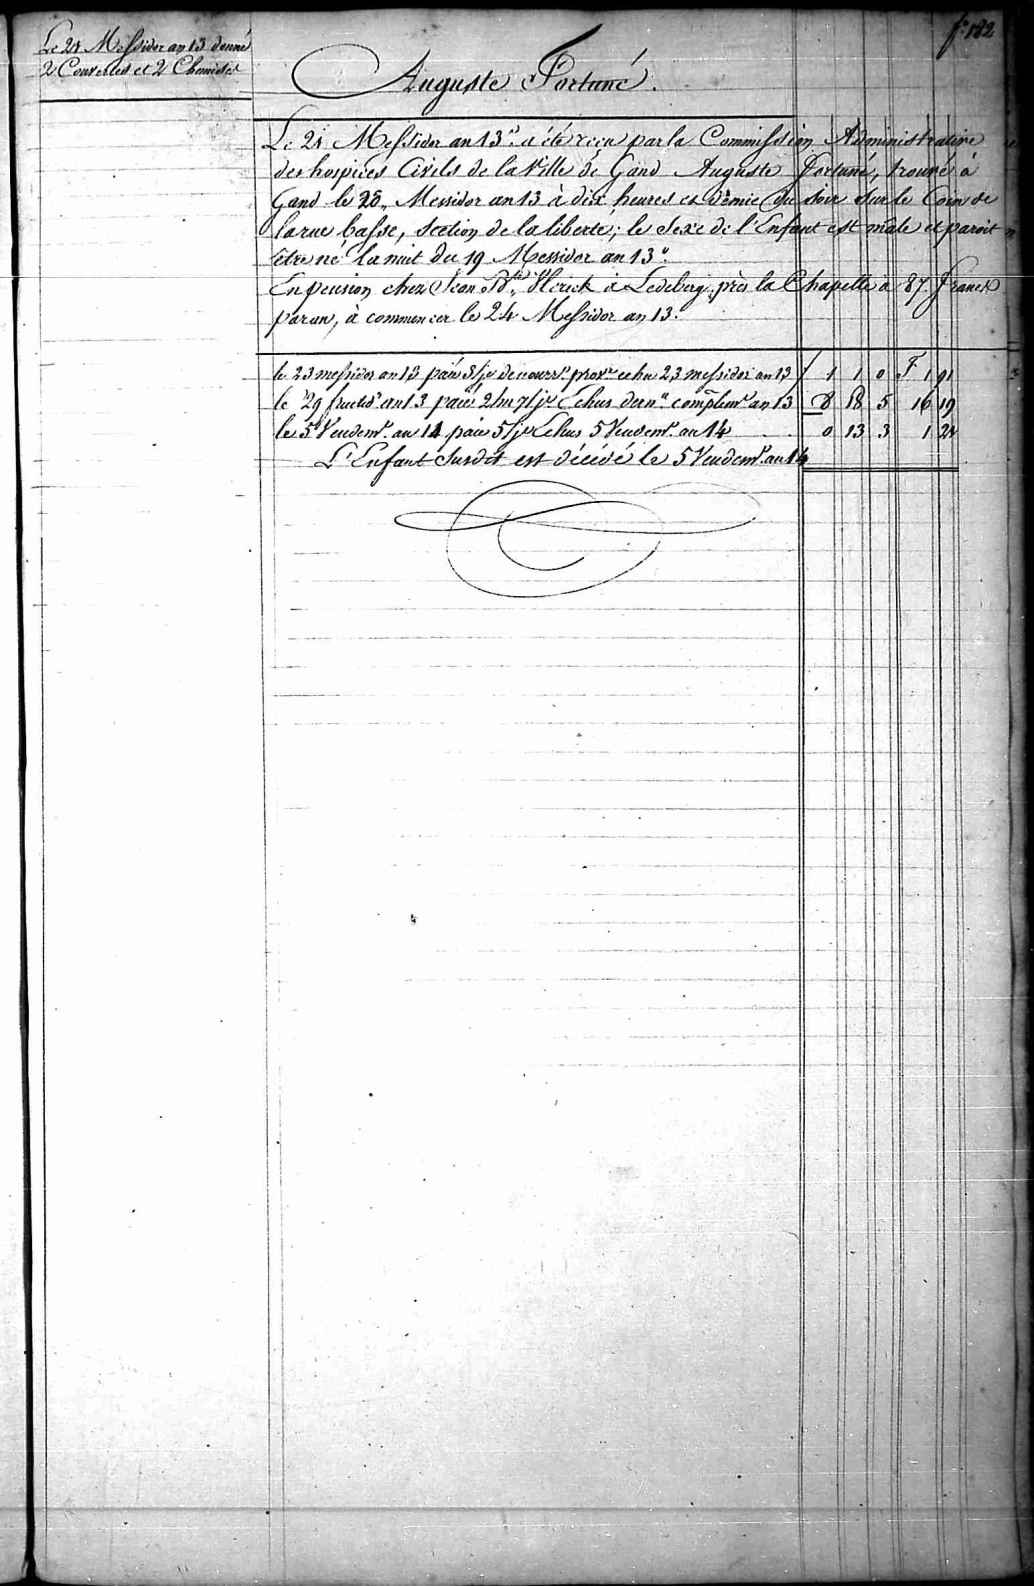 f.o 182
Le 21 Messidor an 13 donné
2 Couvertes et 2 Chemises
Auguste Fortuné.
Le 21 Messidor an 13.e a été reçu par la Commission Administrative
des hospices Civils de la Ville de Gand Auguste Fortuné, trouvé à
Gand le 20, Messidor an 13 à dix heures et demie du soir sur le Coin de
la rue basse, section de la liberté; le Sexe de l'Enfant est mâle et paroit
être né la nuit du 19 Messidor an 13.e
En pension chez Jean B.te D'Herick à Ledeberg, près la Chapelle à 87. francs
par an, à commencer le 24 Messidor an 13.
le 23 messidor an 13 païé de nourr.e prov.re echu 23 messidor an 13 / 1 1 0 F 1 91
le 29 fructid.r an 13 païé 2/m 7/j.s Echus dern.r complém.e an 13 8 18 5 16 19
le 5 Vendem.e an 14 païé 5/j.s Echus 5 Vendem.e an 14 0 13 3 1 21
L'Enfant Susdit est décédé le 5 Vendem.e an 14